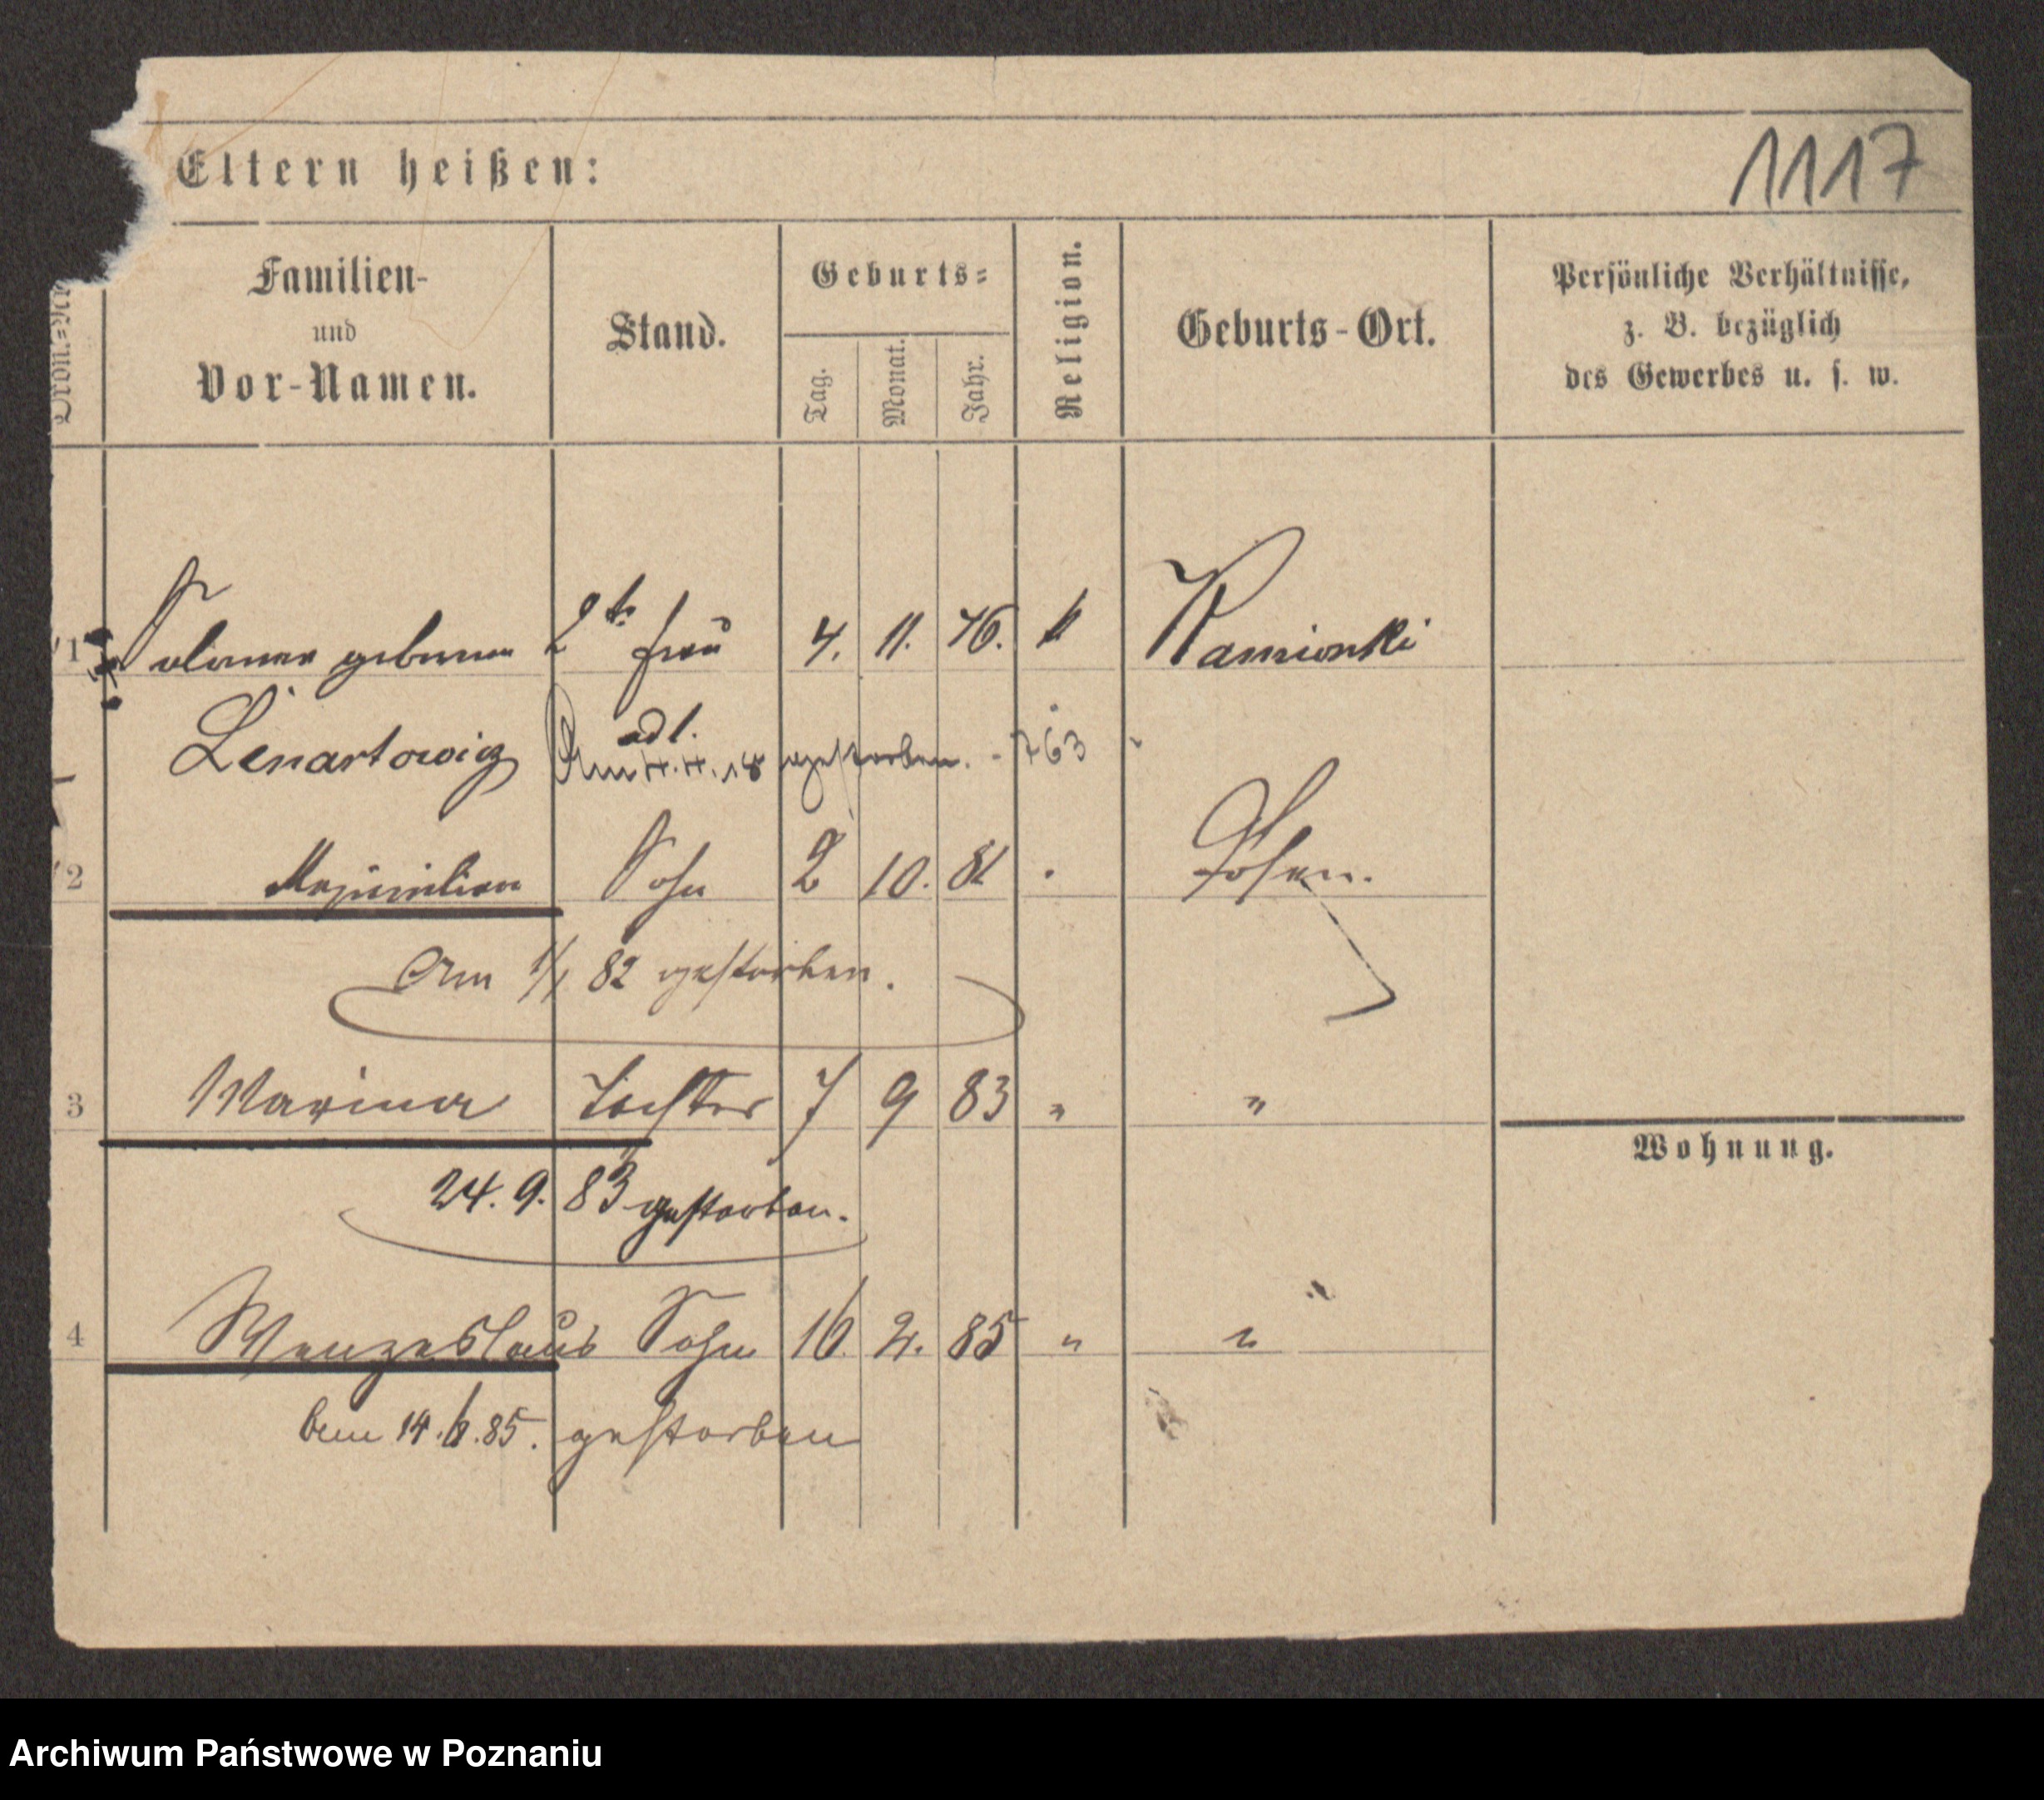 1117
Eltern heißen:
Ordn.=Nr
Familien-
und
Vor-Namen.
Stand.
Geburts=
Tag.
Monat.
Jahr.
Religion.
Geburts-Ort.
Persönliche Verhältnisse,
z. B. bezüglich
des Gewerbes u. s. w.
1 geborene 2te Frau 4. 11. k Kamionki
Lenartowicz
adl.
Am 4.4.18 gestorben. - 763
2 Maximilian Sohn 2 10. 81 " Posen.
Am 1/1 82 gestorben.
3 Marina Tochter 7 9 83 " "
Wohnung.
24. 9. 83 gestorben.
4 Wenzeslaus Sohn 16. 2. 85 " "
14.6.85. gestorben
Archiwum Państwowe w Poznaniu